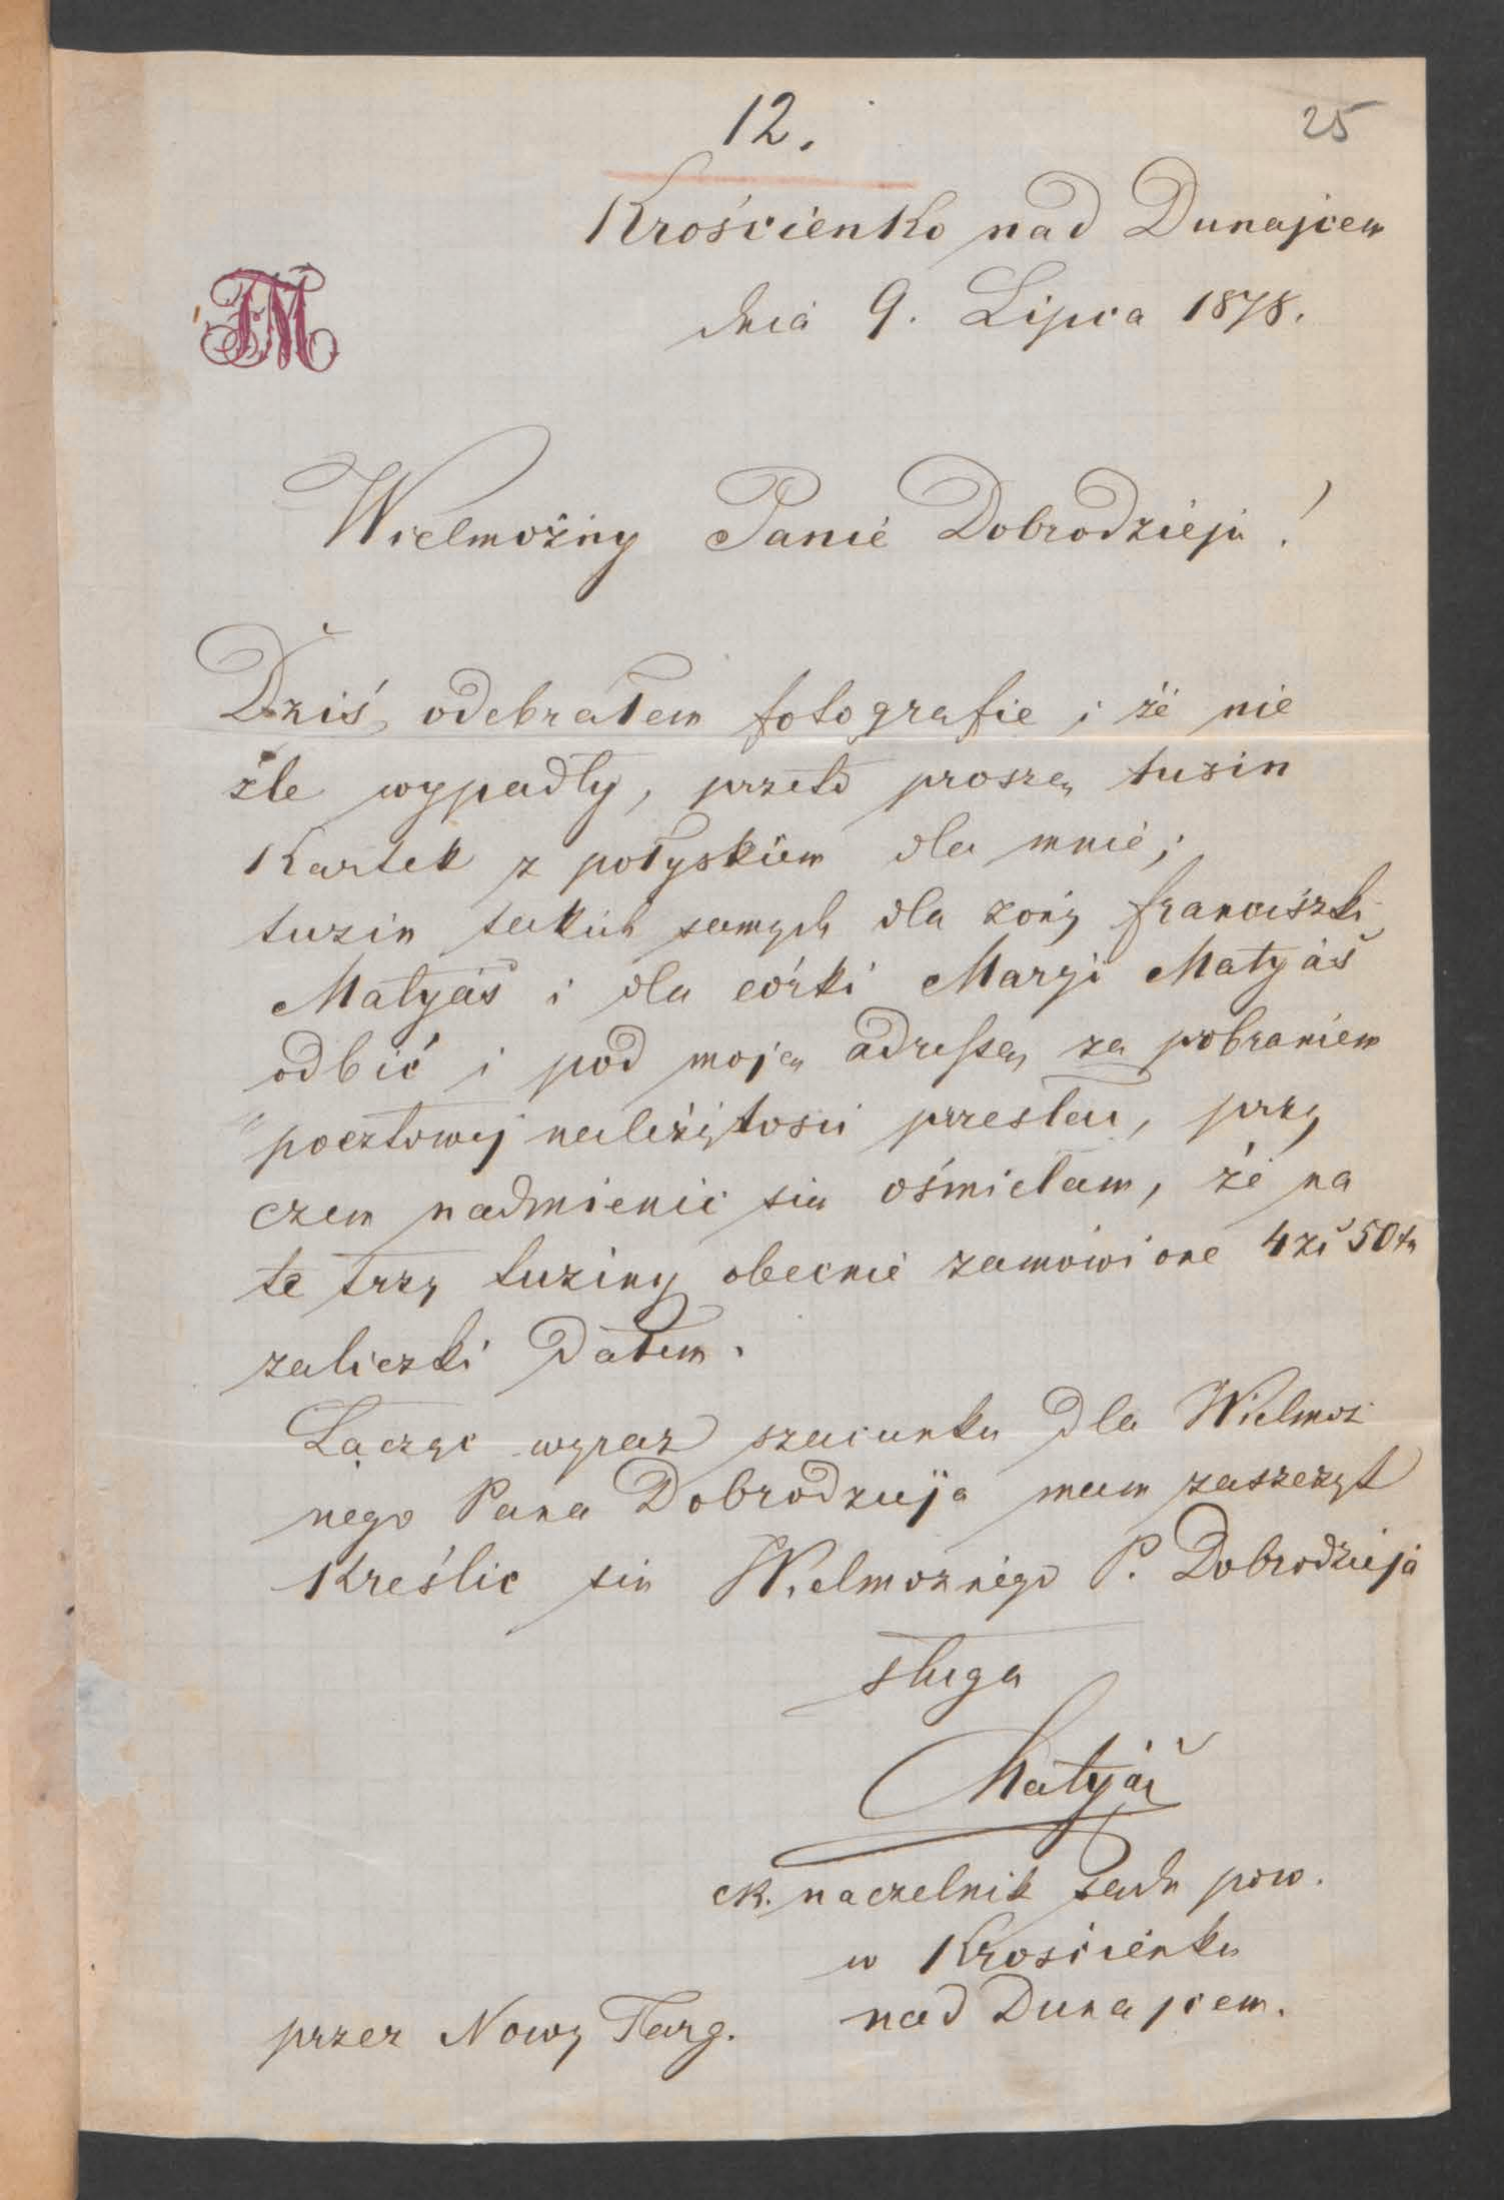 12.
25
Krościenko nad Dunajcem
dnia 9. Lipca 1878.
FM
Wielmożny Panie Dobrodzieju!
Dziś odebrałem fotografie i że nie
źle wypadły, przeto proszę tuzin
Kartek z połyskiem dla mnie;
tuzin takich samych dla żony franciszki
Matyáš i dla córki Maryi Matyáš
odbić i pod moją adressą za pobraniem
pocztowej należytości przesłać, przy
czem nadmienić się ośmielam, że na
te trzy tuziny obecnie zamówione 4 zł 50
zaliczki dałem.
Łącząc wyraz szacunku dla Wielmoż
nego Pana Dobrodzieja mam zaszczyt
Kreślić się Wielmożnego P. Dobrodzieja
sługa
Matyáš
ck. naczelnik sądu pow.
w Krościenku
nad Dunajcem.
przez Nowy Targ.